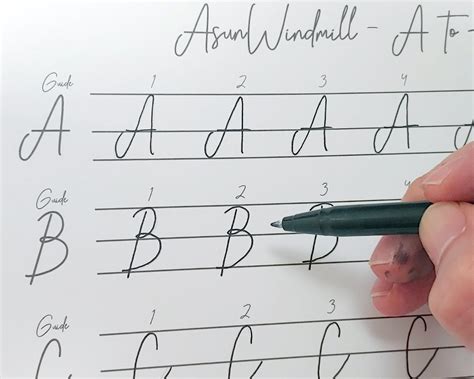 AsunWindmill - A to -
Guide 1 2 3 4
A A A A A
Guide 1 2 3
B B B B
Guide 1 2 3
C C C C C